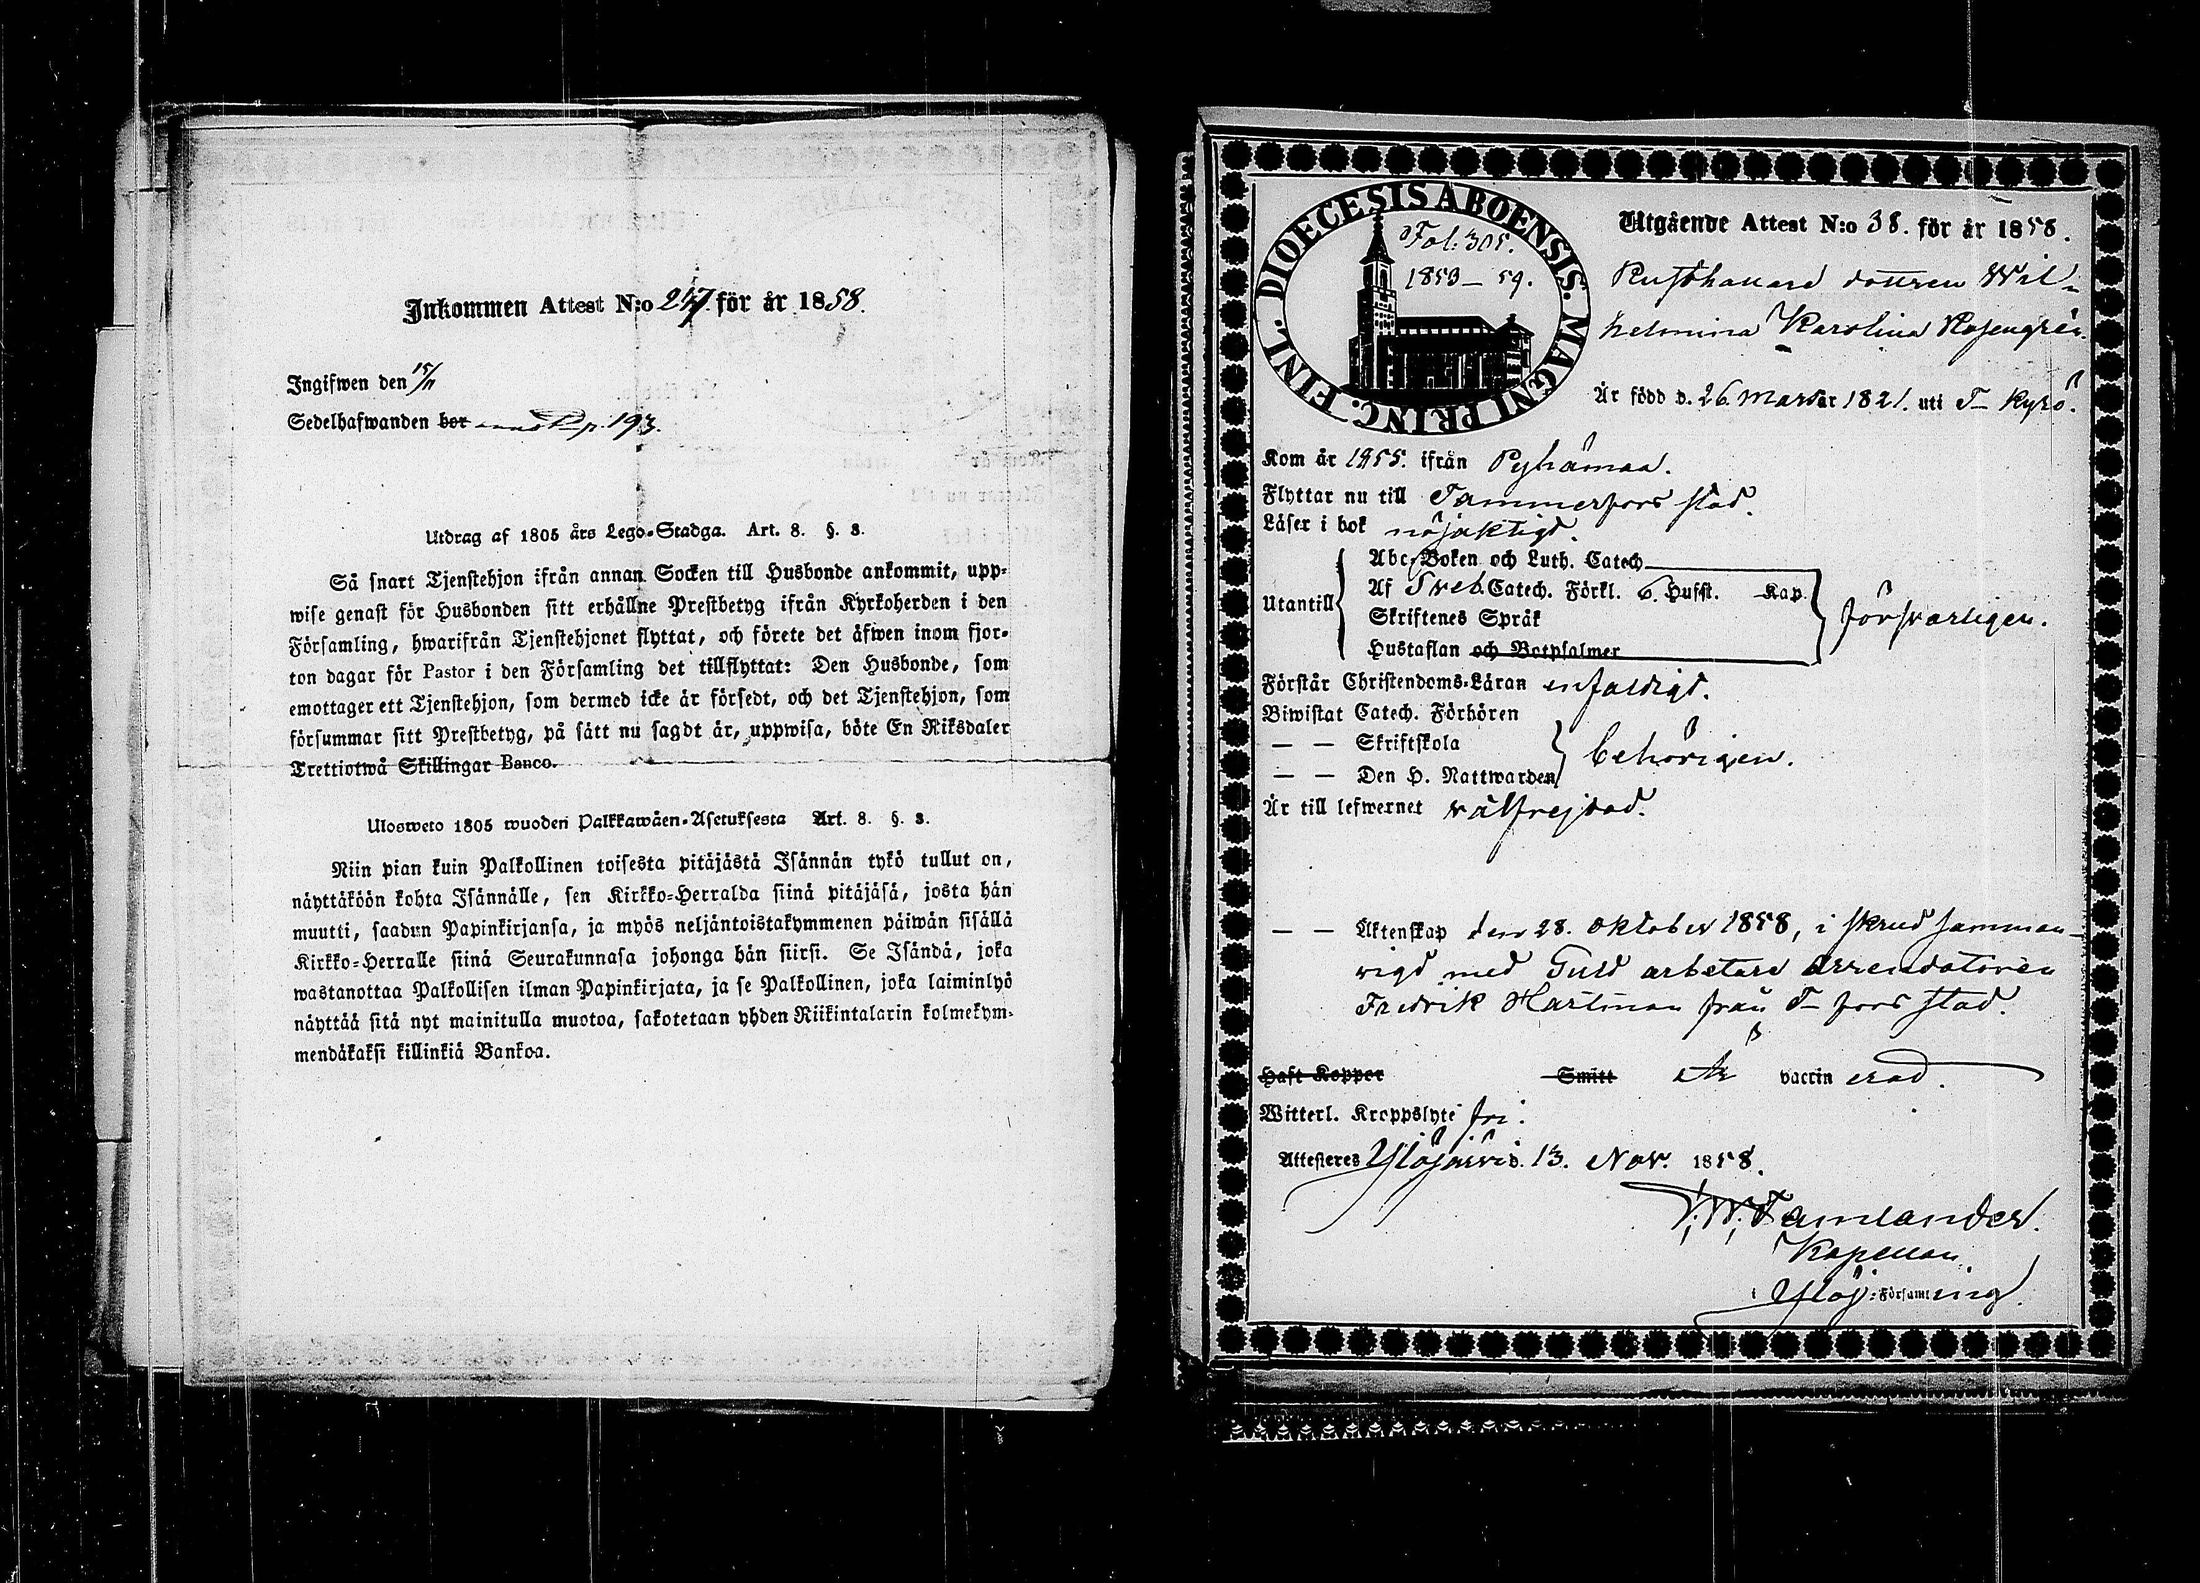 Inkommen Attest N:o 247. för år 1858.
Ingifwen den 15/11
Sedelhafwanden bor p. 193.
Utdrag af 1805 års Lego-Stadga. Art. 8. §. 3.
Så snart Tjenstehjon ifrån annan Socken till Husbonde ankommit, upp-
wise genast för Husbonden sitt erhållne Prestbetyg ifrån Kyrkoherden i den
Församling, hwarifrån Tjenstehjonet flyttat, och förete det äfwen inom fjor-
ton dagar för Pastor i den Församling det tillflyttat: Den Husbonde, som
emottager ett Tjenstehjon, som dermed icke är försedt, och det Tjenstehjon, som
försummar sitt Prestbetyg, på sätt nu sagdt är, uppwisa, böte En Riksdaler
Trettiotwå Skillingar Banco.
Ulosweto 1805 wuoden Palkkawäen-Asetuksesta Art. 8. §. 3.
Niin pian kuin Palkollinen toisesta pitäjästä Isännän tykö tullut on,
näyttäköön kohta Isännälle, sen Kirkko-Herralda siinä pitäjäsä, josta hän
muutti, saadun Papinkirjansa, ja myös neljäntoistakymmenen päiwän sisällä
Kirkko-Herralle siinä Seurakunnasa johonga hän siirsi. Se Isändä, joka
wastanottaa Palkollisen ilman Papinkirjata, ja se Palkollinen, joka laiminlyö
näyttää sitä nyt mainitulla muotoa, sakotetaan yhden Riikintalarin kolmekym-
mendäkaksi killinkiä Bankoa.
DIOECESIS ABOENSIS. MAGNI PRINC. FINL.
Fol. 305.
1853–59.
Utgående Attest N:o 38. för år 1858.
Rusthållare dottren Wil-
helmina Karolina Rosengrén.
Är född d. 26 Mars år 1821. uti T– Kyrö.
Kom år 1855. ifrån Pyhämaa.
Flyttar nu till Tammerfors stad.
Läser i bok nöjaktigt.
Utantill
Abc-Boken och Luth. Catech.
Af Sveb. Catech. Förkl. 6. Hufst. Kap.
Skriftenes Språk
Hustaflan och Botpsalmer
försvarligen.
Förstår Christendoms-Läran enfaldigt.
Biwistat Catech. Förhören
— — Skriftskola
— — Den H. Nattwarden
behörigen.
Är till lefwernet välfrejdad.
— — Äktenskap den 28. Oktober 1858, i skrud samman-
vigd med Guld arbetare Arrendatoren
Fredrik Hartman från T– fors stad.
Haft Koppor Smitt Är vaccin erad.
Witterl. Kroppslyte fri.
Attesteres Ylöjärvi d. 13. Nov. 1858.
Kapellan
i Ylöj: Församling.